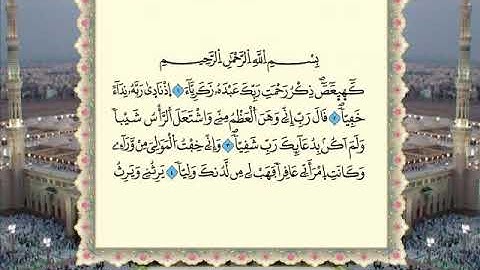 بِسْمِ اِ۬للَّهِ اِ۬لرَّحْمَٰنِ اِ۬لرَّحِيمِ
كَٓهيعَٓصَٓ ذِكْرُ رَحْمَتِ رَبِّكَ عَبْدَهُۥ زَكَرِيَّآءَ ١ اِذْ نَادَىٰ رَبَّهُۥ نِدَآءً
خَفِيّاٗ قَالَ رَبِّ إِنِّے وَهَنَ اَ۬لْعَظْمُ مِنِّے وَاشْتَعَلَ اَ۬لرَّأْسُ شَيْباٗ
وَلَمَ اَكُنۢ بِدُعَآئِكَ رَبِّ شَقِيّاٗ ٣ وَإِنِّے خِفْتُ اُ۬لْمَوَٰلِيَ مِنْ وَّرَآءِے
وَكَانَتِ اِ۪مْرَأَتِے عَاقِراٗ فَهَبْ لِے مِن لَّدُنكَ وَلِيّاٗ ٤ يَرِثُنِے وَيَرِثُ